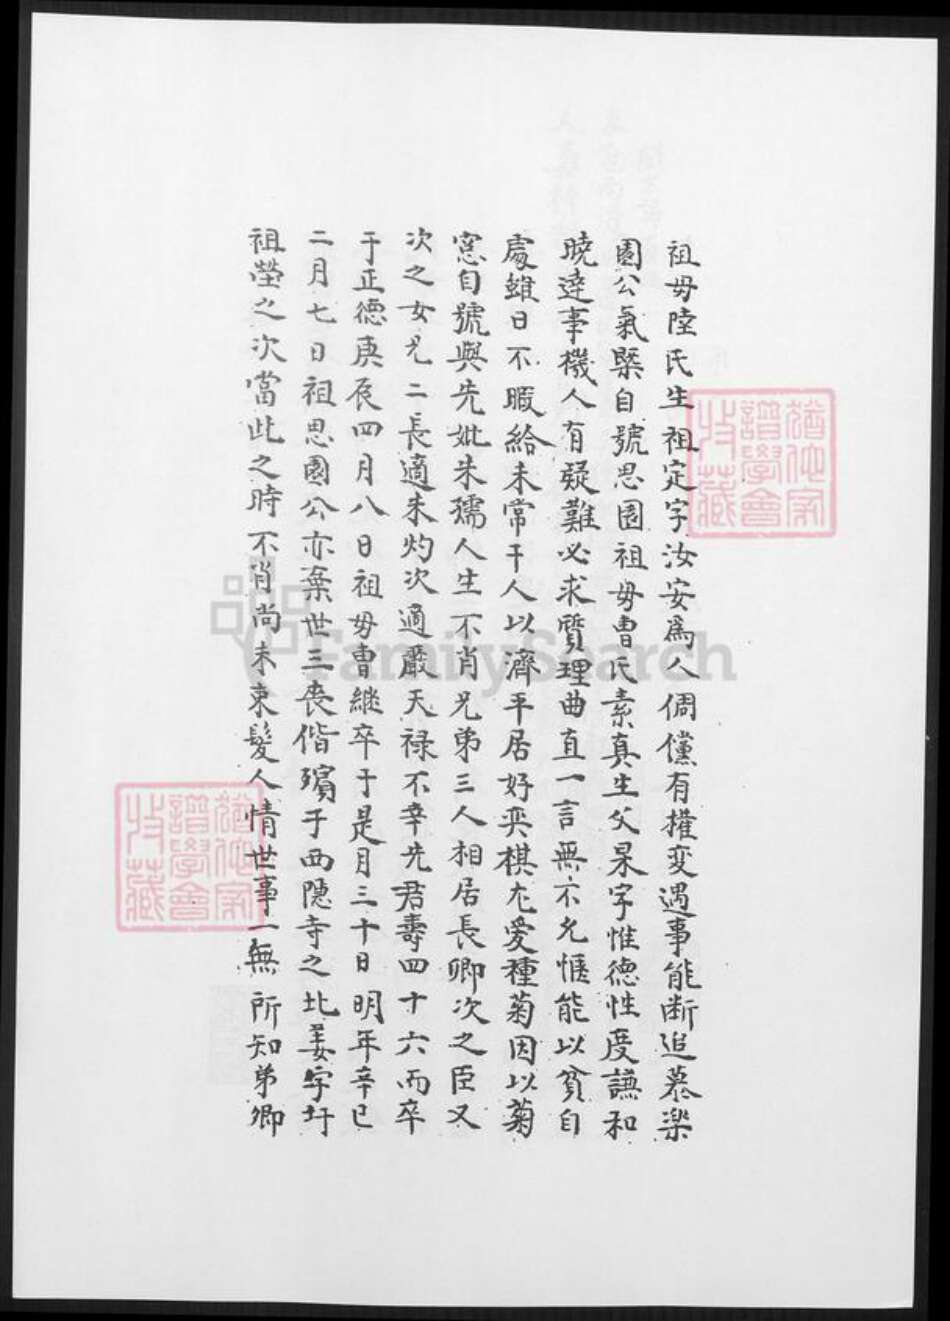 祖毋陸氏生祖定字汝安爲人倜儻有權变遇事能断追慕楽
園公氣槩自號思園祖毋曹氏素真生父杲字惟德性度謙和
曉達事機人有疑難必求質理曲直一言無不允愜能以貧自
處雖日不暇給未常干人以濟平居好奕棋尤愛種菊因以菊
窓自號與先妣朱孺人生不肖兄弟三人相居長卿次之臣又
次之女兄二長適朱灼次適嚴天禄不幸先君壽四十六而卒
于正德庚辰四月八日祖毋曹継卒于是月三十日明年辛巳
二月七日祖思園公亦棄世三喪偕殯于西隠寺之北姜字圩
祖塋之次當此之時不肖尚未束髮人情世事一無所知弟卿
譜學會
收藏
FamilySearch
譜學會
收藏